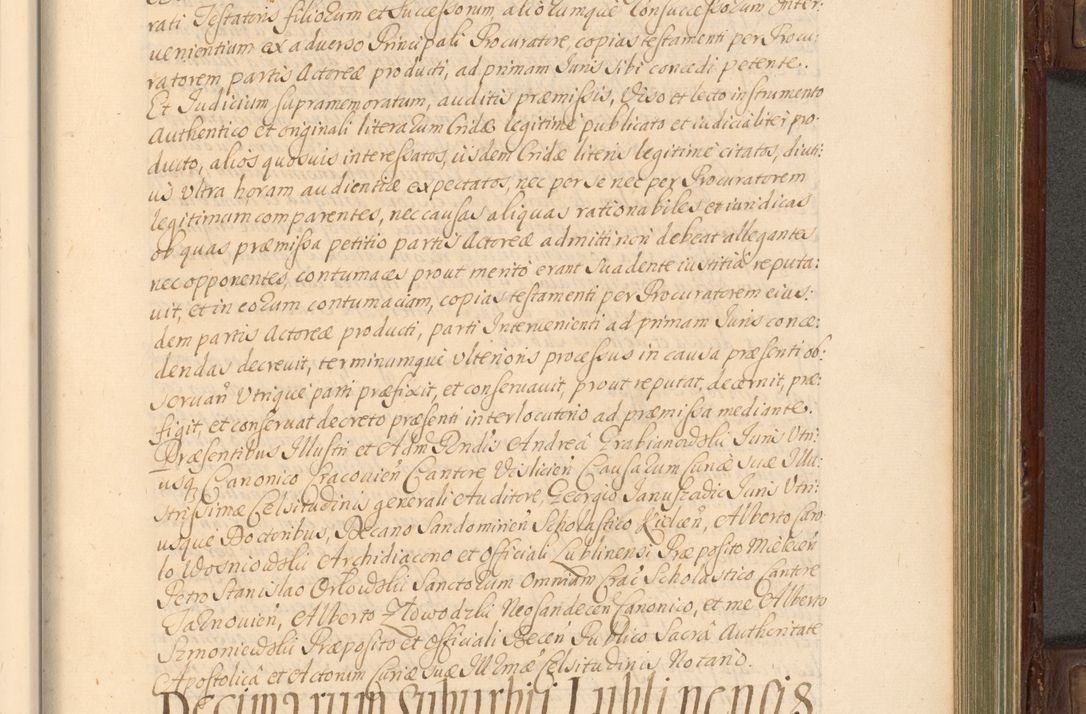 rati Testatoris filiorum et Successorum aliorumque Consuccessorum Inter:
uenientium ex aduerso Principali Procuratore, copias testamenti per Procu:
ratorem partis Actoreæ producti, ad primam Iuris sibi concedi petente.
Et Iudicium supramemoratum, auditis præmissis, Viso et lecto instrumento
Authentico et originali literarum Cridæ legitimè publicato et iudicialiter pro:
ducto, alios quosuis interessatos, iisdem Cridæ literis legitimè citatos, diuti:
us Vltra horam audientiæ expectatos, nec per se nec per Procuratorem
legitimum comparentes, nec causas aliquas rationabiles et iuridicas
ob quas præmissa petitio partis Actoreæ admitti non debeat allegantes
nec opponentes, contumaces prout meritò erant suadente iustitiâ reputa:
uit, et in eorum contumaciam, copias testamenti per Procuratorem eius:
dem partis Actoreæ producti, parti Interuenienti ad primam Iuris conce:
dendas decreuit, terminumque Vlterioris processus in causa præsenti ob:
seruañ Vtrique parti præfixit, et conseruauit, prout reputat, decernit, præ:
figit, et conseruat decreto præsenti interlocutorio ad præmissa mediante.
Præsentibus Illustri et Adm Rndis Andrea Grabianowski Iuris Vtri:
usq Canonico Cracovień Cantore Vislicień Causarum Curiæ suæ Illu:
strissimæ Celsitudinis generali Auditore, Georgio Januszadic Iuris Vtri:
usque Doctoribus, Decano Sandomirień Scholastico Kielceń, Alberto Caro
lo Wosniowski Archidiacono et Officiali Lublinensi Præposito Mieleceń
Petro Stanislao Orlowski Sanctorum Omnium Crac Scholastico Cantore
Tarnovień, Alberto Złowodzki Neosandeceń Canonico, et me Alberto
Szmoniewski Præposito et Officiali Beceń Publico Sacrâ Authoritate
Apostolicâ et Actorum Curiæ suæ Illmæ Celsitudinis Notario.
Decimarum Suburbii Lublinensis